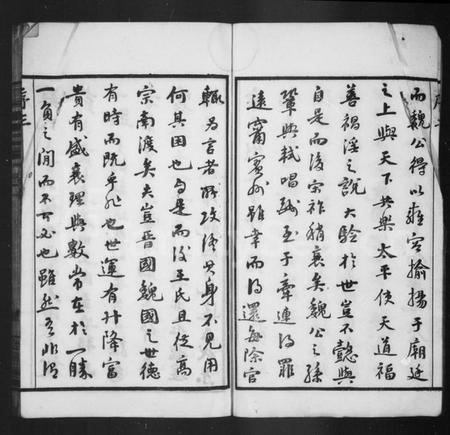 而魏公得以雍容揄揚于廟廷
之上與天下共樂太平使天道福
善禍淫之說大驗於世豈不懿與
自是而後宗祚稍衰矣魏公之孫
鞏與軾唱酬至于牽連得罪
遠竄賓州雖幸而得還每除官
輒為言者所攻後其身不見用
何其困也自是而後王氏且從高
宗南渡矣夫豈晉國魏國之世德
有時而既乎非也世運有升降富
貴有盛衰理與數常在於一勝
一負之間而不可必也雖然吾非謂
序三